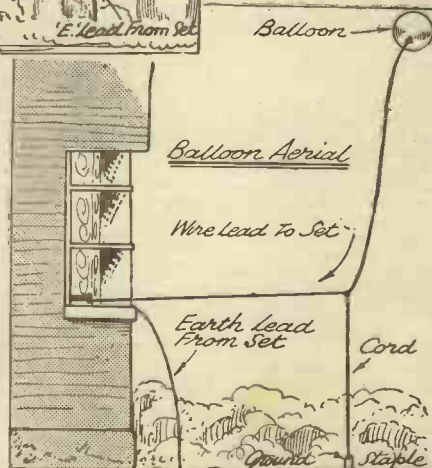 "E" Lead From Set
Balloon
Balloon Aerial
Wire Lead To Set
Earth Lead
From Set
Cord
Ground
Staple